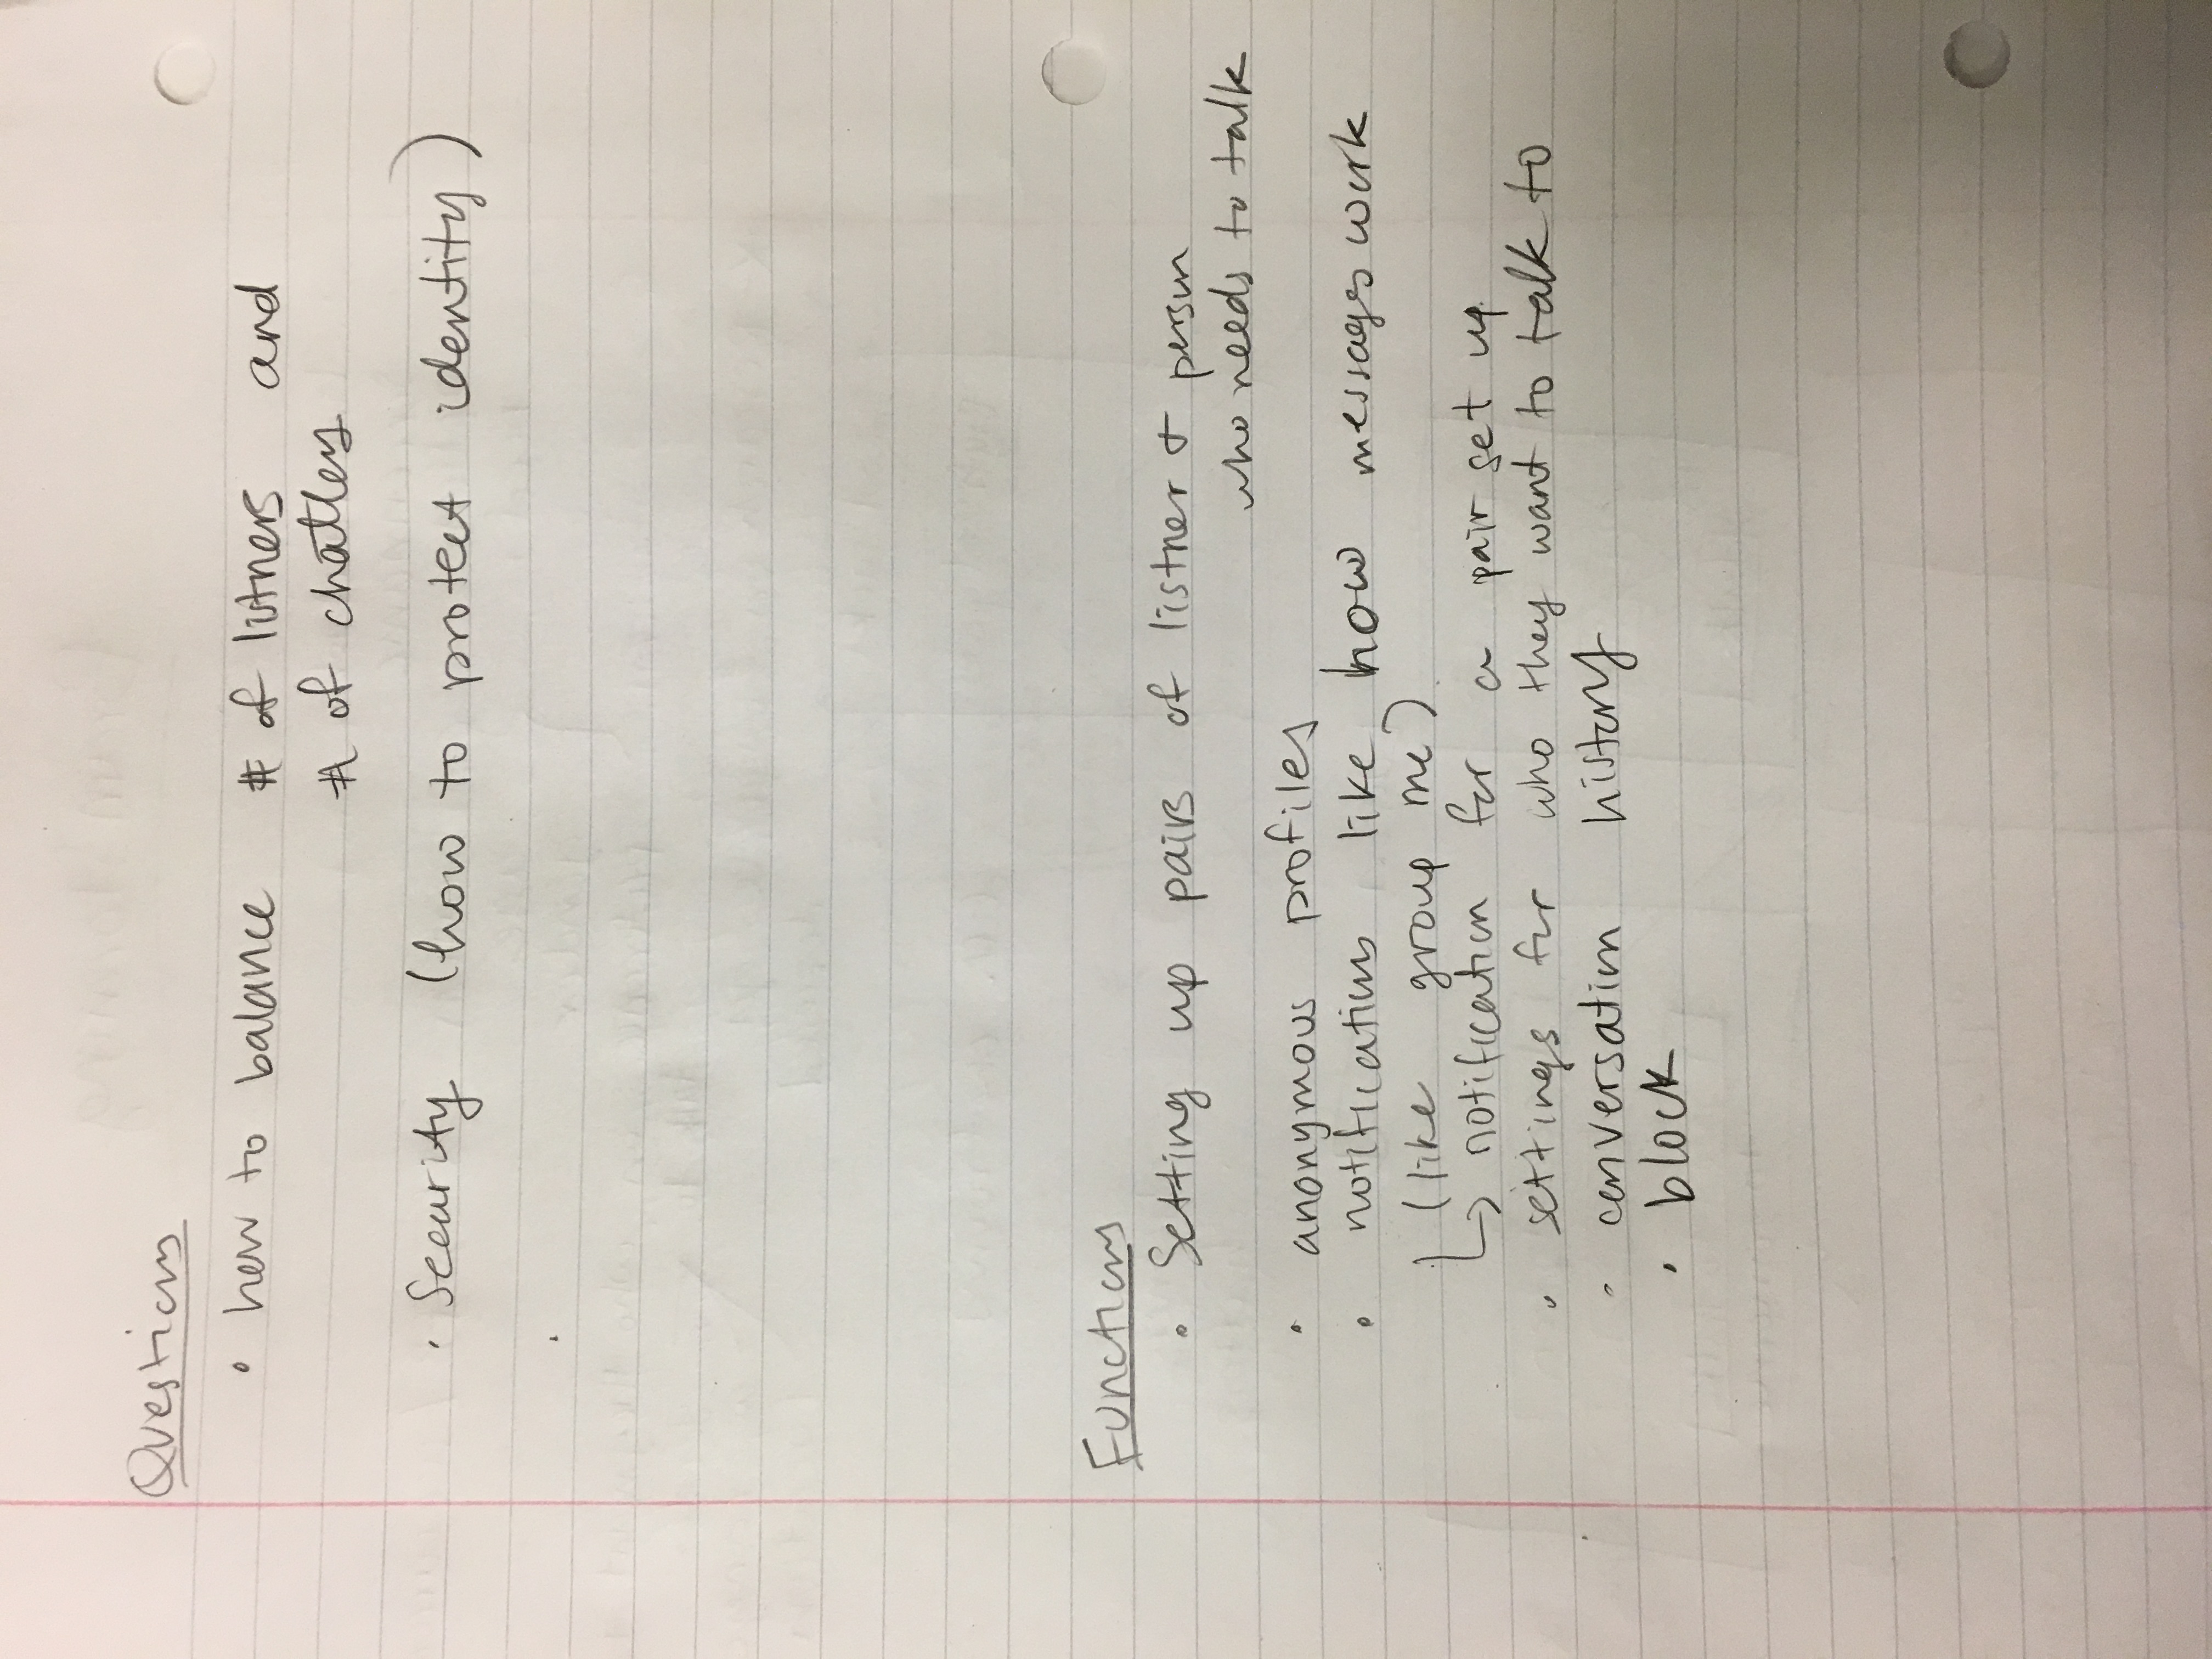 Questions
• how to balance # of listners and
# of chatters
• Security (how to protect identity)
•
Functions
• Setting up pairs of listner & person
who needs to talk
• anonymous profiles
• notifications like how messages work
(like group me)
↳ notification for a pair set up
• settings for who they want to talk to
• conversation history
• block